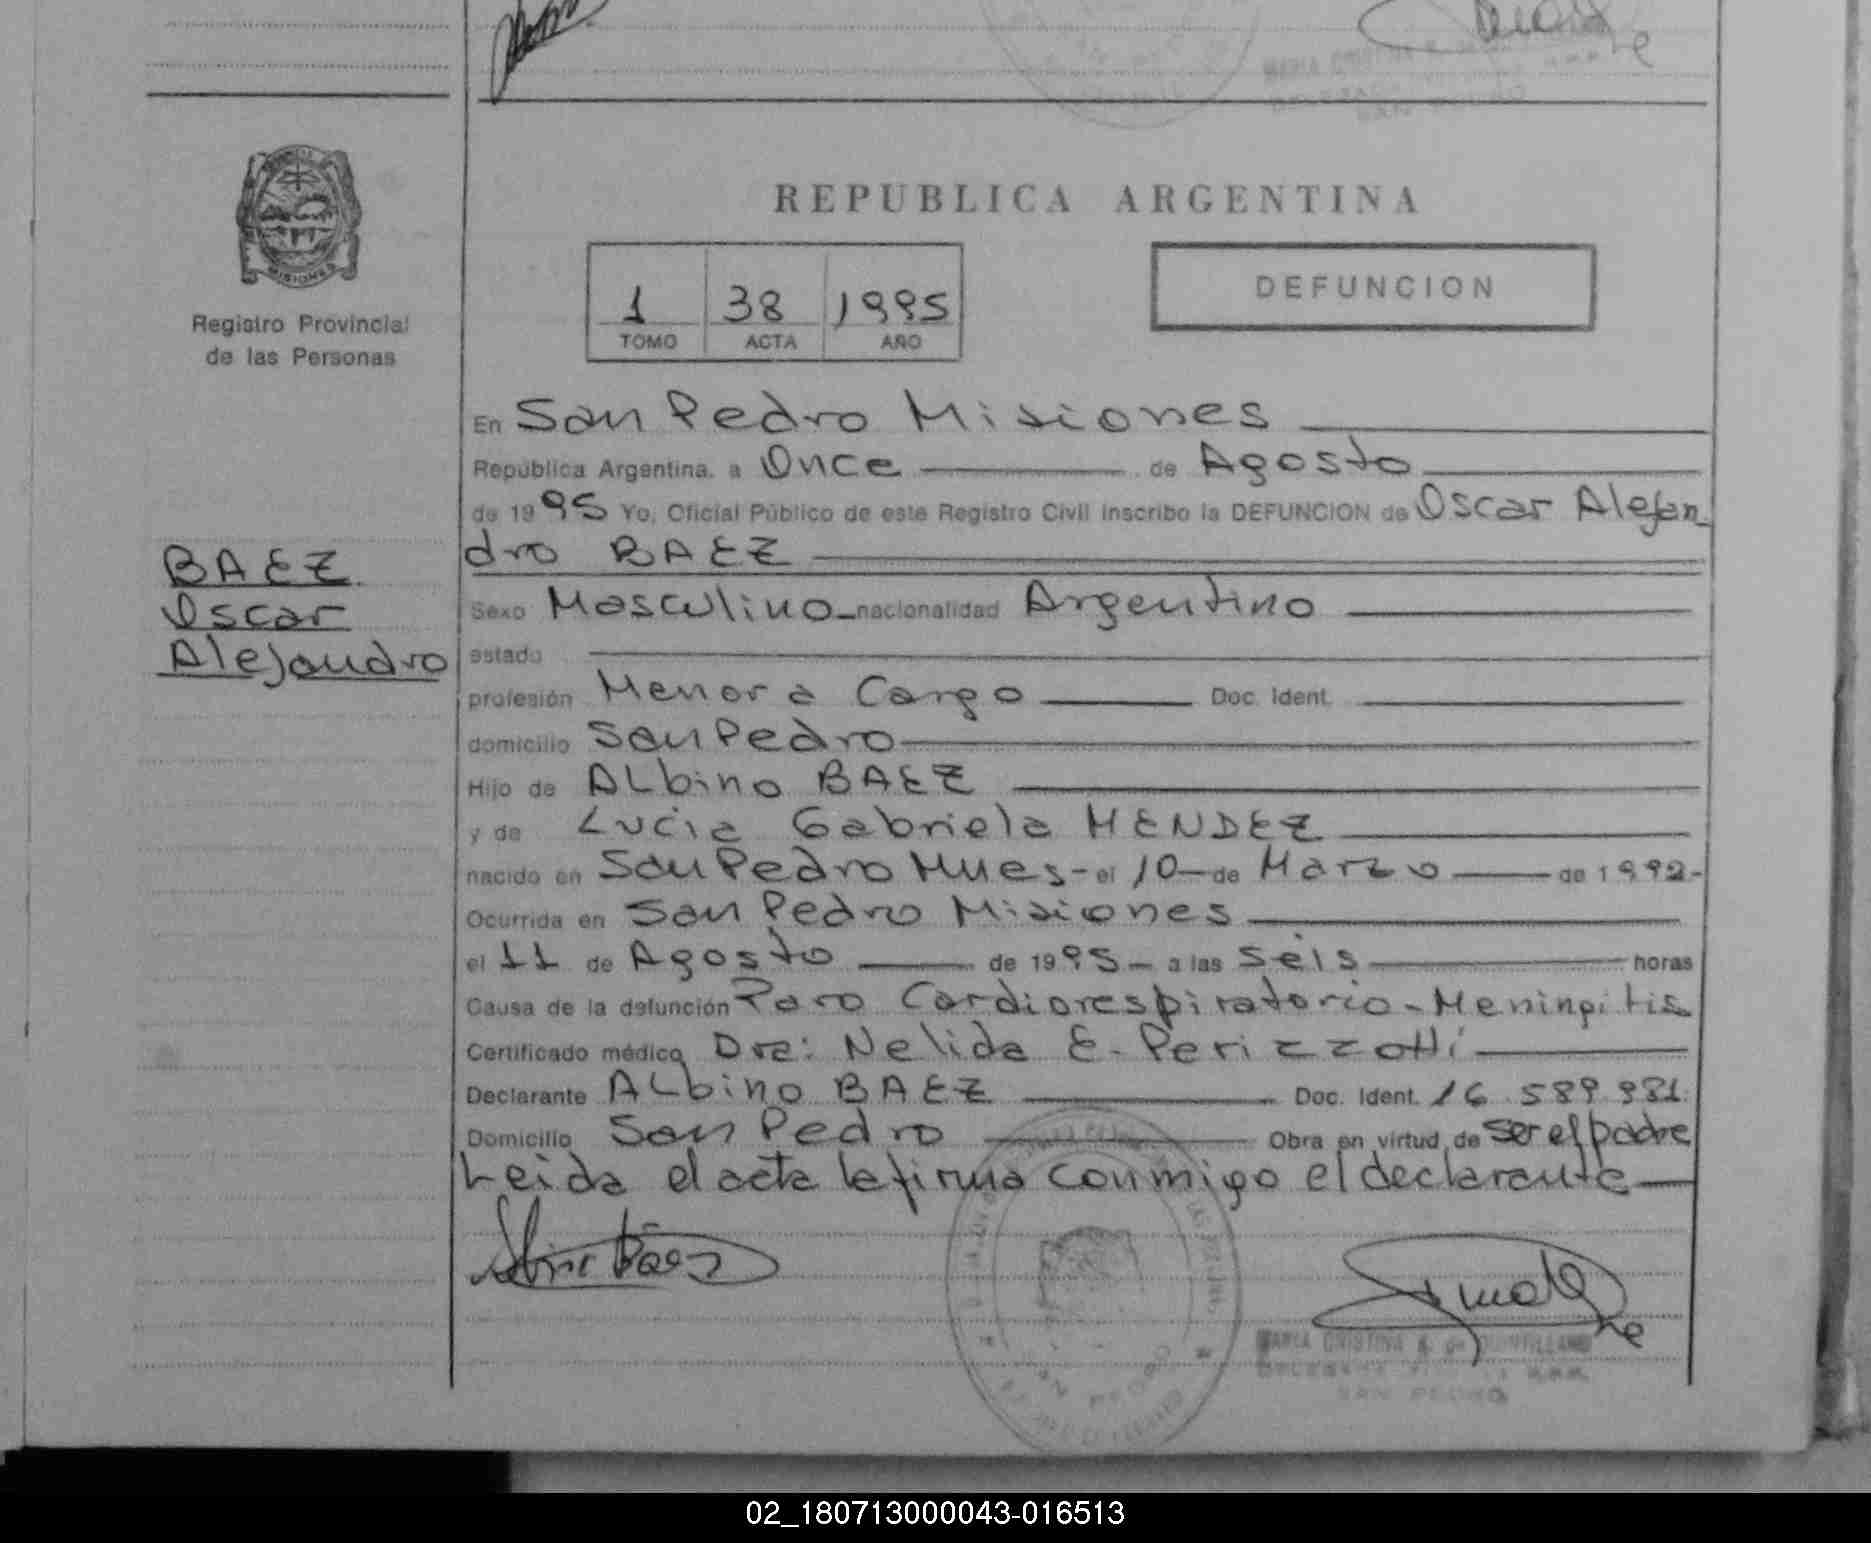 REPUBLICA ARGENTINA
1 38 1995
TOMO ACTA AÑO
DEFUNCION
MISIONES
Registro Provincial
de las Personas
BAEZ
Oscar
Alejandro
En San Pedro Misiones
República Argentina. a Once de Agosto
de 1995 Yo, Oficial Público de este Registro Civil inscribo la DEFUNCION de Oscar Alejan-
dro BAEZ
Sexo Masculino nacionalidad Argentino
estado
profesión Menor a Cargo Doc. Ident.
domicilio San Pedro
Hijo de ALbino BAEZ
y de Lucia Gabriela MENDEZ
nacido en San Pedro Mnes - el 10 - de Marzo de 1992-
Ocurrida en San Pedro Misiones
el 11 de Agosto de 1995 - a las Seis horas
Causa de la defunción Paro Cardiorespiratorio - Meningitis
Certificado médico Dra: Nelida E. Perizzotti
Declarante ALbino BAEZ Doc. Ident. 16.589.981
Domicilio San Pedro Obra en virtud de ser el padre
Leida el acta la firma conmigo el declarante
Baez
SAN PEDRO
MARIA CRISTINA de QUINTILLANO
SAN PEDRO
02_180713000043-016513